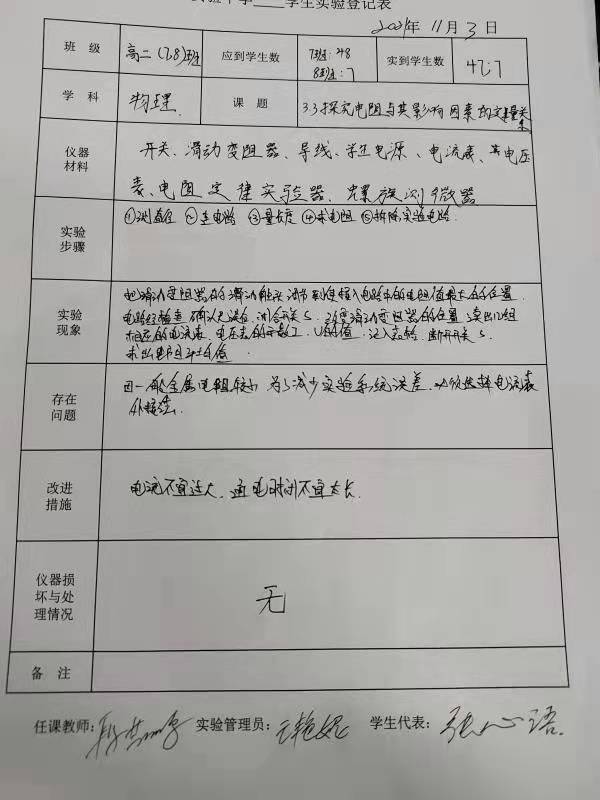 学生实验登记表
2021年 11月 3日
班 级 高二(7,8)班 应到学生数 7班:48 8班:7 实到学生数 47;7
学 科 物理 课 题 3.3探究电阻与其影响因素的定量关系
仪器材料 开关、滑动变阻器、导线、学生电源、电流表、电压
表、电阻定律实验器、螺旋测微器
实验步骤 ①测直径 ②连电路 ③量长度 ④求电阻 ⑤拆除实验电路
实验现象 把滑动变阻器的滑动触头调节到使接入电路中的电阻值最大的位置
电路经检查确认无误后,闭合开关S. 改变滑动变阻器的位置,读出几组
相应的电流表、电压表的示数I、U的值,记入表格,断开开关S.
求出电阻R的值
存在问题 因一般金属电阻较小 为了减少实验系统误差,必须选择电流表
外接法.
改进措施 电流不宜过大、通电时间不宜太长.
仪器损坏与处理情况 无
备 注
任课教师: 实验管理员: 学生代表: 张心语